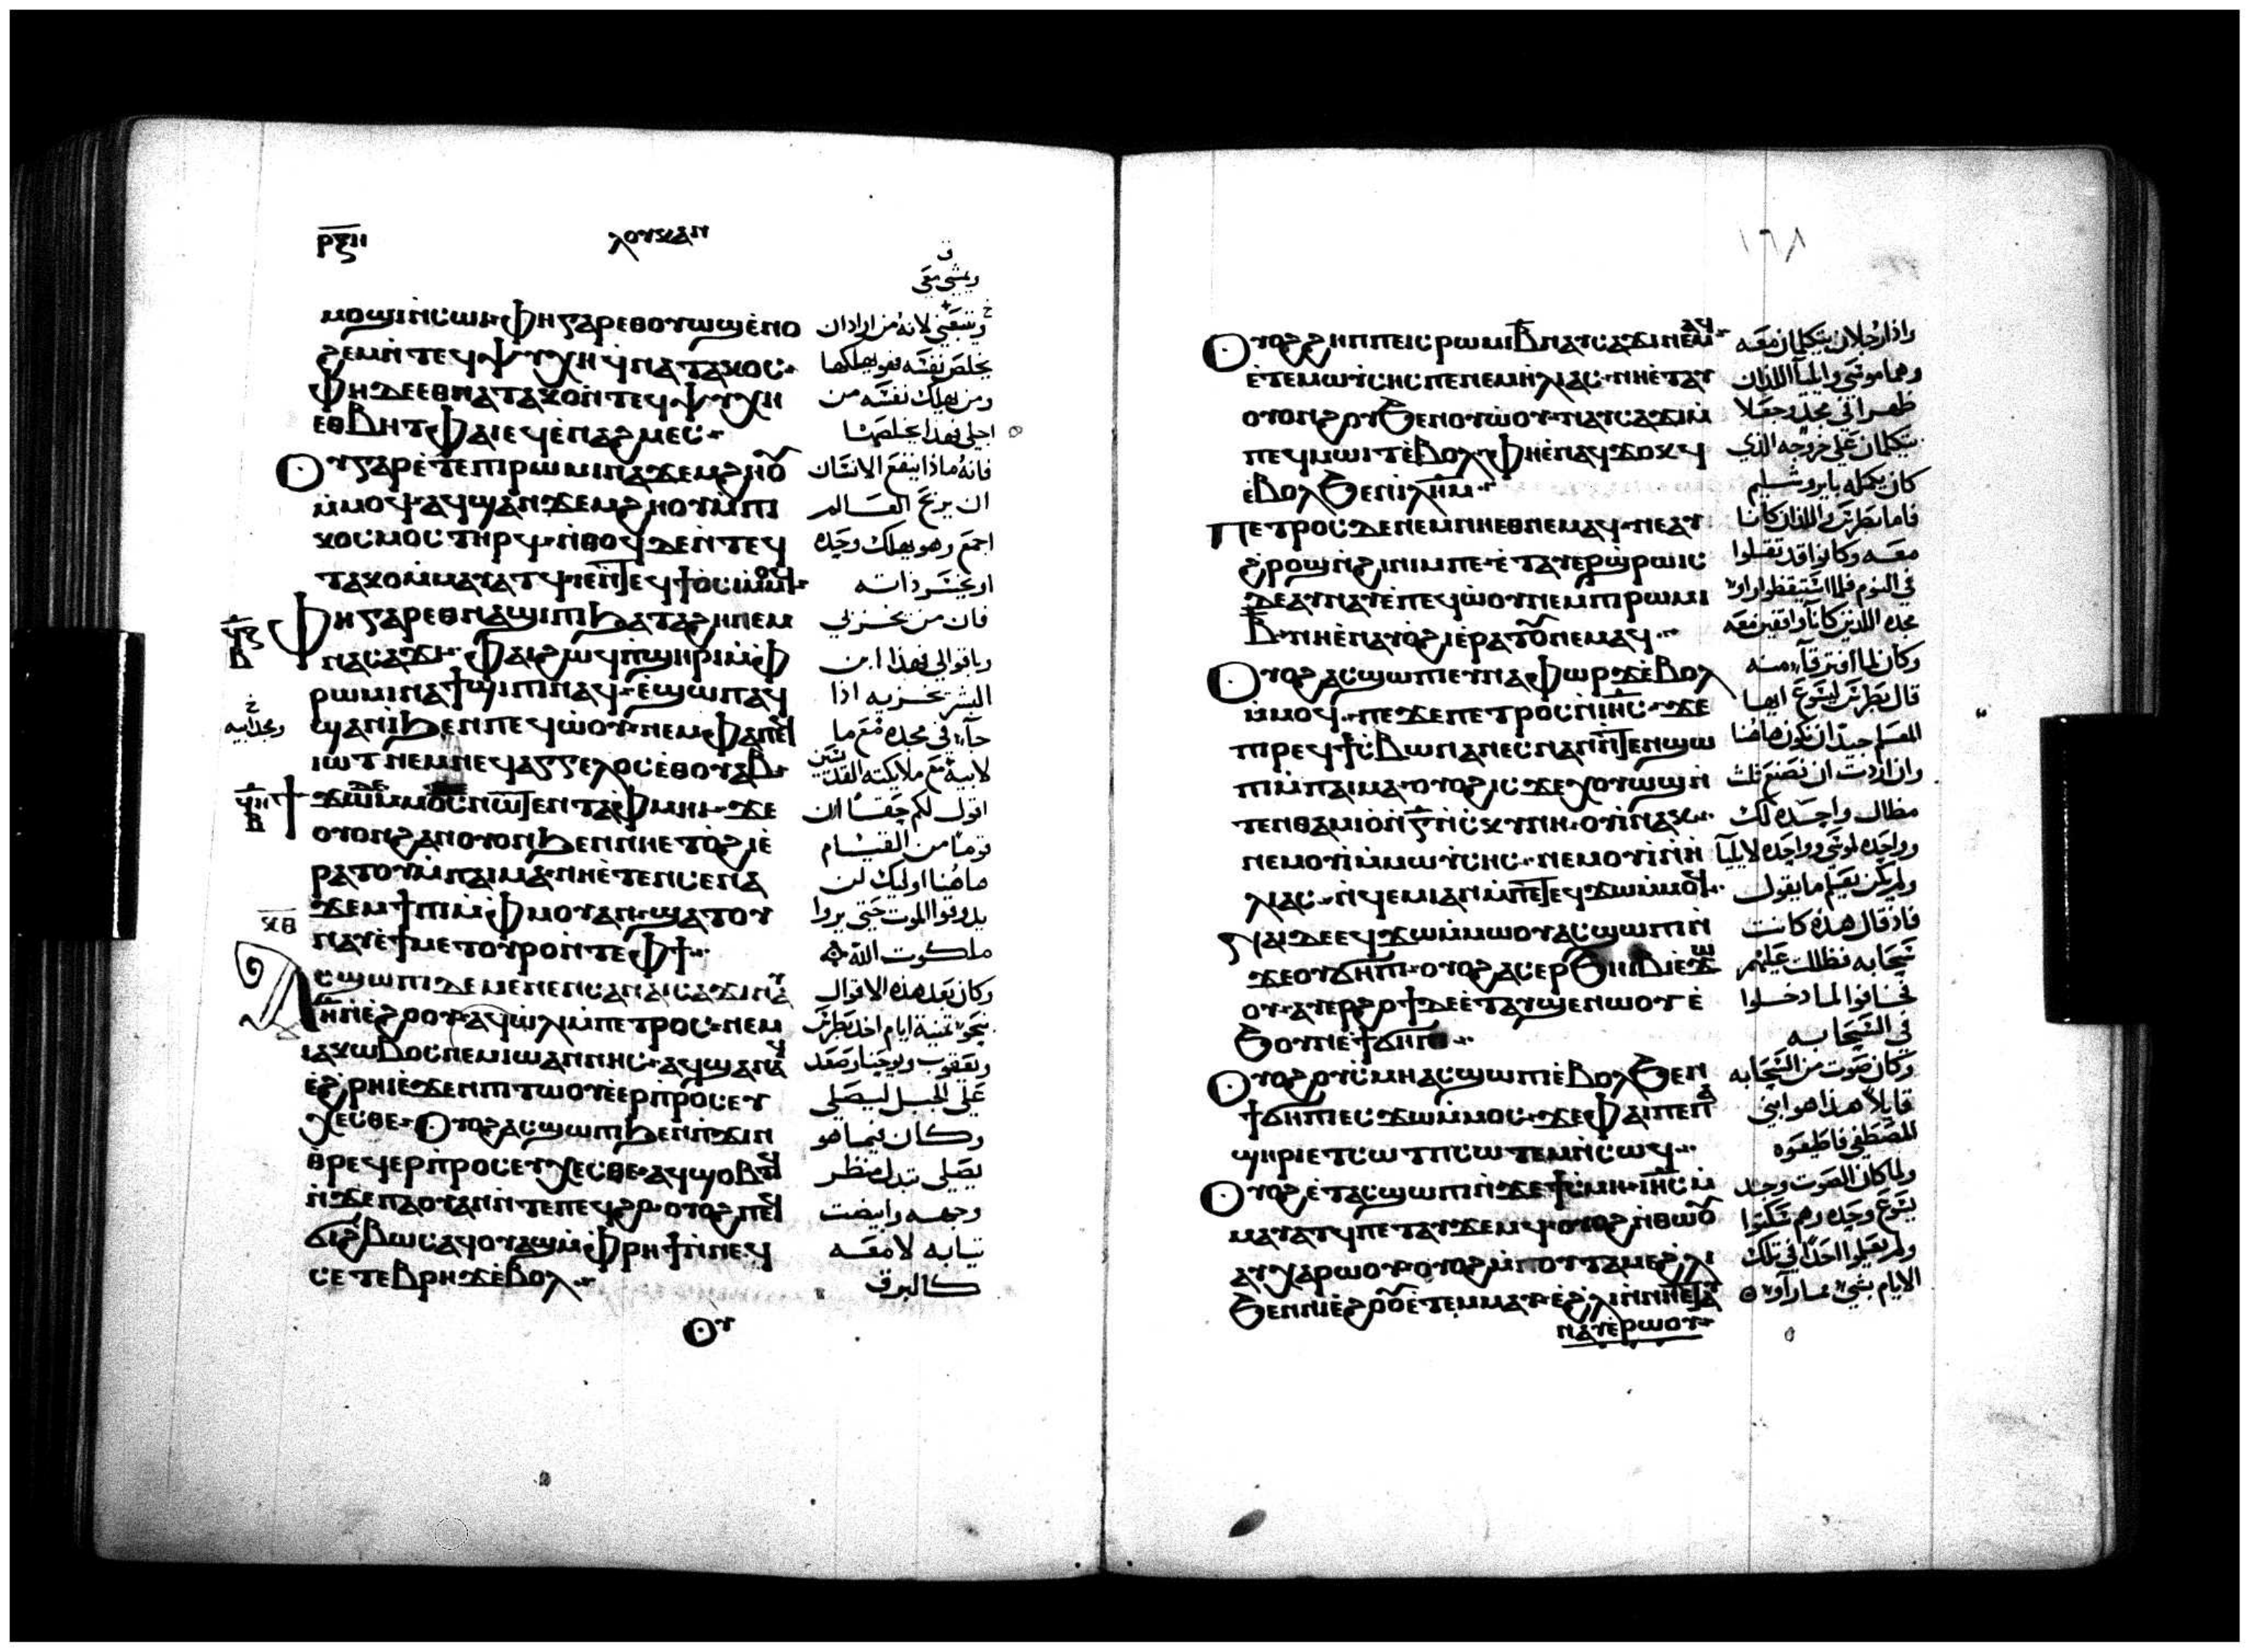 ⲣⲝⲏ
ⲗⲟⲩⲕⲁⲛ
ف
ويمشي معي
ⲙⲟϣⲓⲛ̀ⲥⲱⲓ· ⲫⲏⲅⲁⲣⲉⲑⲟⲩⲱϣⲉ̀ⲛⲟ
ϩⲉⲙⲛ̀ⲧⲉϥⲯⲩⲭⲏϥⲛⲁⲧⲁⲕⲟⲥ·
ⲫⲏⲇⲉⲉⲑⲛⲁⲧⲁⲕⲟⲛ̀ⲧⲉϥⲯⲩⲭⲏ
ⲉⲑⲃⲏⲧ ⲫⲁⲓⲉϥⲉ̀ⲛⲁϩⲙⲉⲥ·
ⲟⲩⲅⲁⲣⲉ̀ⲧⲉⲡⲓⲣⲱⲙⲓⲛⲁϫⲉⲙϩⲏⲟⲩ
ⲙ̀ⲙⲟϥ· ⲁϥϣⲁⲛϫⲉⲙϩⲏⲟⲩⲙ̀ⲡⲓ
ⲕⲟⲥⲙⲟⲥⲧⲏⲣϥ· ⲛ̀ⲑⲟϥⲇⲉⲛ̀ⲧⲉϥ
ⲧⲁⲕⲟⲙ̀ⲙⲁⲩⲁⲧϥ· ⲓⲉⲛ̀ⲧⲉϥϯⲟⲥⲓⲙ̀ⲙⲟϥ·
ⲫⲏⲅⲁⲣⲉⲑⲛⲁϣⲓⲡⲓϧⲁⲧⲁϩⲏⲛⲉⲙ
ⲛⲁⲥⲁϫⲓ· ⲫⲁⲓϩⲱϥⲡ̀ϣⲏⲣⲓⲙ̀ⲫ
ⲣⲱⲙⲓⲛⲁϯϣⲓⲡⲓⲛⲁϥ· ⲉ̀ϣⲱⲡⲁϥ
ϣⲁⲛⲓ̀ϧⲉⲛⲡⲉϥⲱ̀ⲟⲩ· ⲛⲉⲙⲫⲁⲡⲉϥ
ⲓⲱⲧ ⲛⲉⲙⲛⲉϥⲁⲅⲅⲉⲗⲟⲥⲉ̀ⲑⲟⲩⲁⲃ·
ϯϫⲱⲇⲉⲙ̀ⲙⲟⲥⲛⲱⲧⲉⲛⲧⲁⲫⲙⲏⲓ· ϫⲉ
ⲟⲩⲟⲛϩⲁⲛⲟⲩⲟⲛϧⲉⲛⲛⲏⲉⲧⲟ̀ϩⲓⲉ̀
ⲣⲁⲧⲟⲩⲙ̀ⲡⲁⲓⲙⲁ· ⲛⲏⲉ̀ⲧⲉⲛⲥⲉⲛⲁ
ϫⲉⲙϯⲡⲓⲙ̀ⲫⲙⲟⲩⲁⲛ· ϣⲁⲧⲟⲩ
ⲛⲁⲩⲉ̀ϯⲙⲉⲧⲟⲩⲣⲟⲛ̀ⲧⲉⲫϯ·
ⲁⲥϣⲱⲡⲓⲇⲉⲙⲉⲛⲉⲛⲥⲁⲛⲁⲓⲥⲁϫⲓⲛⲁⲩ
ⲏ̅ⲛ̀ⲉ̀ϩⲟⲟⲩ· ⲁϥⲱ̀ⲗⲓⲙ̀ⲡⲉⲧⲣⲟⲥ· ⲛⲉⲙ
ⲓⲁⲕⲱⲃⲟⲥⲛⲉⲙⲓⲱⲁⲛⲛⲏⲥ· ⲁϥϣⲉⲛⲁϥ
ⲉ̀ϩⲣⲏⲓⲉ̀ϫⲉⲛⲡⲓⲧⲱⲟⲩⲉ̀ⲉⲣⲡ̀ⲣⲟⲥⲉⲩ
ⲭⲉⲥⲑⲉ· ⲟⲩⲟϩⲁⲥϣⲱⲡⲓϧⲉⲛⲡϫⲓⲛ
ⲑⲣⲉϥⲉⲣⲡ̀ⲣⲟⲥⲉⲩⲭⲉⲥⲑⲉ· ⲁϥϣⲟⲃⲧϥ
ⲛ̀ϫⲉⲡⲁⲟⲩⲁⲛⲛ̀ⲧⲉⲡⲉϥϩⲟ· ⲟⲩⲟϩⲡⲉϥ
ϭⲓϩⲃⲱⲥⲁϥⲟⲩⲁϣⲙ̀ⲫⲣⲏϯⲛ̀ⲛⲉϥ
ⲥⲉⲧⲉⲃⲣⲏϫⲉ̀ⲃⲟⲗ·
ⲟⲩ
ويتبعني لانه من اراد ان
يخلص نفسه فهو يهلكها
ومن يهلك نفسه من
اجلي فهذا يخلصها
فانه ماذا ينفع الانسان
ان يربح العالم
اجمع وهو يهلك وحده
او يخسر ذاته
فان من يخزي بي
وباقوالي فهذا ابن
البشر يخزيه اذا
جاء في مجده مع ما
لابيه مع ملايكته القديسين
اقول لكم حقا ان
قوما من القيام
هاهنا اوليك لن
يدوقوا الموت حتي يروا
ملكوت الله
وكان بعد هذه الاقوال
نحو ثمنية ايام اخذ بطرس
ويعقوب ويوحنا وصعد
علي الجبل ليصلي
وكان فيما هو
يصلي تبدل منظر
وجهه وابيضت
تيابه لامعه
كالبرق
ومجد ابيه
ⲕⲑ
١٦٨
ⲟⲩⲟϩϩⲏⲡⲡⲉⲓⲥⲣⲱⲙⲓⲃ̅ⲛⲁⲩⲥⲁϫⲓⲛⲉⲙⲁϥ·
ⲉ̀ⲧⲉⲙⲱⲩ̀ⲥⲏⲥⲡⲉⲛⲉⲙⲏ̀ⲗⲓⲁⲥ· ⲛⲏⲉ̀ⲧⲁⲩ
ⲟⲩⲟⲛϩⲟⲩϧⲉⲛⲟⲩⲱ̀ⲟⲩ· ⲛⲁⲩⲥⲁϫⲓⲙ̀
ⲡⲉϥⲙⲱⲓⲧⲉ̀ⲃⲟⲗ· ⲫⲏⲉ̀ⲛⲁϥϫⲟⲕϥ
ⲉ̀ⲃⲟⲗϧⲉⲛⲓⲗ̅ⲏ̅ⲙ̅·
ⲡⲉⲧⲣⲟⲥⲇⲉⲛⲉⲙⲛⲏⲉⲑⲛⲉⲙⲁϥ· ⲛⲉⲁⲩ
ϩⲣⲟϣⲛ̀ϩⲓⲛⲓⲙⲡⲉ· ⲉ̀ⲧⲁⲩⲉⲣϣ̀ⲣⲱⲓⲥ
ⲇⲉⲁⲩⲛⲁⲩⲉ̀ⲡⲉϥⲱ̀ⲟⲩⲛⲉⲙⲡⲓⲣⲱⲙⲓ
ⲃ̅· ⲛⲏⲉ̀ⲛⲁⲩⲟ̀ϩⲓⲉ̀ⲣⲁⲧⲟⲩⲛⲉⲙⲁϥ·
ⲟⲩⲟϩⲁⲥϣⲱⲡⲓⲉⲩⲛⲁⲫⲱⲣϫⲉ̀ⲃⲟⲗ
ⲙ̀ⲙⲟϥ· ⲡⲉϫⲉⲡⲉⲧⲣⲟⲥⲛ̀ⲓⲏ̅ⲥ̅· ϫⲉ
ⲡⲓⲣⲉϥϯⲥ̀ⲃⲱⲛⲁⲛⲉⲥⲛⲁⲛⲛ̀ⲧⲉⲛϣⲱ
ⲡⲓⲙ̀ⲡⲁⲓⲙⲁ· ⲟⲩⲟϩⲓⲥϫⲉⲭⲟⲩⲱϣⲛ̀
ⲧⲉⲛⲑⲁⲙⲓⲟ̀ⲛ̀ⲅ̅ⲛ̀ⲥ̀ⲕⲩⲛⲏ· ⲟⲩⲓ̀ⲛⲁⲕ·
ⲛⲉⲙⲟⲩⲓ̀ⲙ̀ⲙⲱⲩ̀ⲥⲏⲥ· ⲛⲉⲙⲟⲩⲓ̀ⲛ̀ⲏ̀
ⲗⲓⲁⲥ· ⲛ̀ϥⲉⲙⲓⲁⲛⲙ̀ⲡⲉⲧⲉϥϫⲱⲙ̀ⲙⲟϥ·
ⲛⲁⲓⲇⲉⲉϥϫⲱⲙ̀ⲙⲱⲟⲩⲁⲥϣⲱⲡⲓⲛ̀
ϫⲉⲟⲩϭⲏⲡⲓ· ⲟⲩⲟϩⲁⲥⲉⲣϧⲏⲓⲃⲓⲉ̀ϫⲱ
ⲟⲩ· ⲁⲩⲉⲣϩⲟϯⲇⲉⲉ̀ⲧⲁⲩϣⲉⲛⲱⲟⲩⲉ̀
ϧⲟⲩⲛⲉ̀ϯϭⲏⲡⲓ·
ⲟⲩⲟϩⲟⲩⲥ̀ⲙⲏⲁⲥϣⲱⲡⲓⲉ̀ⲃⲟⲗϧⲉⲛ
ϯϭⲏⲡⲓⲉⲥϫⲱⲙ̀ⲙⲟⲥ· ϫⲉⲫⲁⲓⲡⲉⲡⲁ
ϣⲏⲣⲓⲉⲧⲥⲱⲧⲡⲥⲱⲧⲉⲙⲛ̀ⲥⲱϥ·
ⲟⲩⲟϩⲉ̀ⲧⲁⲥϣⲱⲡⲓⲛ̀ϫⲉϯⲥ̀ⲙⲏ· ⲓⲏ̅ⲥ̅ⲙ̀
ⲙⲁⲩⲁⲧϥⲡⲉⲧⲁⲩϫⲉⲙϥ· ⲟⲩⲟϩⲛ̀ⲑⲱⲟⲩ
ⲁⲩⲭⲁⲣⲱⲟⲩ· ⲟⲩⲟϩⲙ̀ⲡⲟⲩⲧⲁⲙⲉϩⲗⲓ
ϧⲉⲛⲛⲓⲉ̀ϩⲟⲟⲩⲉ̀ⲧⲉⲙⲙⲁⲩ· ⲉ̀ϩⲗⲓⲛ̀ⲛⲏⲉⲧⲁⲩ
ⲛⲁⲩⲉ̀ⲣⲱⲟⲩ·
واذا رجلان يتكلمان معه
وهما موسي وايليا اللذان
ظهرا في مجد وجعلا
يتكلمان علي خروجه الذي
كان يكمله بايروشليم
فاما بطرس واللذان كانا
معه وكانوا قد تقلوا
في النوم فلما استيقظوا راوا
مجده اللذين كانا واقفين معه
وكان لما افترقا منه
قال بطرس ليسوع ايها
المعلم جيد ان نكون هاهنا
وان اردت ان نصنع تلت
مظال واحده لك
وواحده لموسي وواحده لايليا
ولم يكن يعلم ما يقول
فاذ قال هذه كانت
سحابه فظللت عليهم
فخافوا لما دخلوا
في السحابه
وكان صوت من السحابه
قايلا هذا هو ابني
المصطفي فاطيعوه
ولما كان الصوت وجد
يسوع وحده وهم سكتوا
ولم يعلموا احدا في تلك
الايام بشي مما راوا